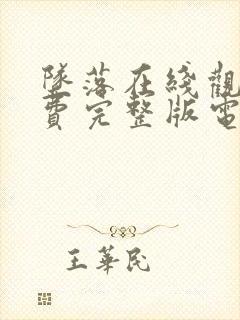 墜落在綫觀
費完整版電
王華民